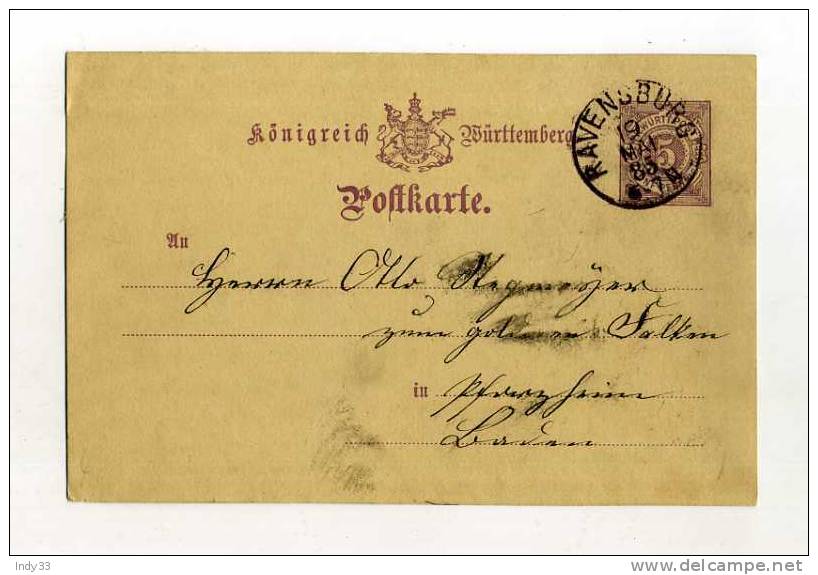 Königreich Württemberg
RAVENSBURG
19
MAI
85
WÜRTT
5
Postkarte.
An
Herrn Otto Stegmeyer
zum goldenen Falken
in Pforzheim
Baden
Indy33
www.delcampe.net